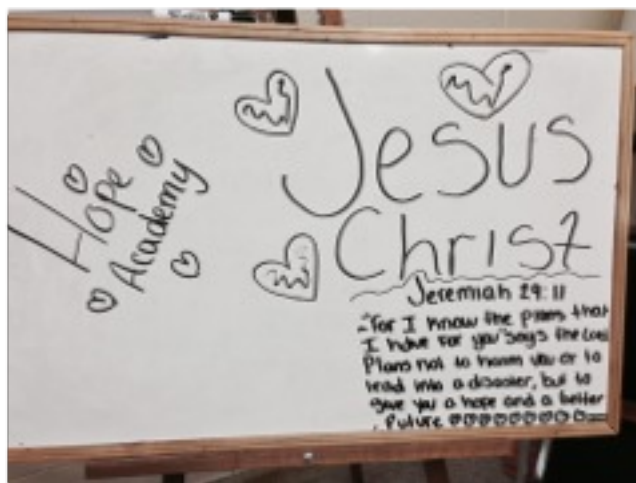 Hope
Academy
Jesus
Christ
Jeremiah 29:11
"For I know the plans that
I have for you" says the Lord
Plans not to harm you or to
lead into a disaster, but to
give you a hope and a better
future